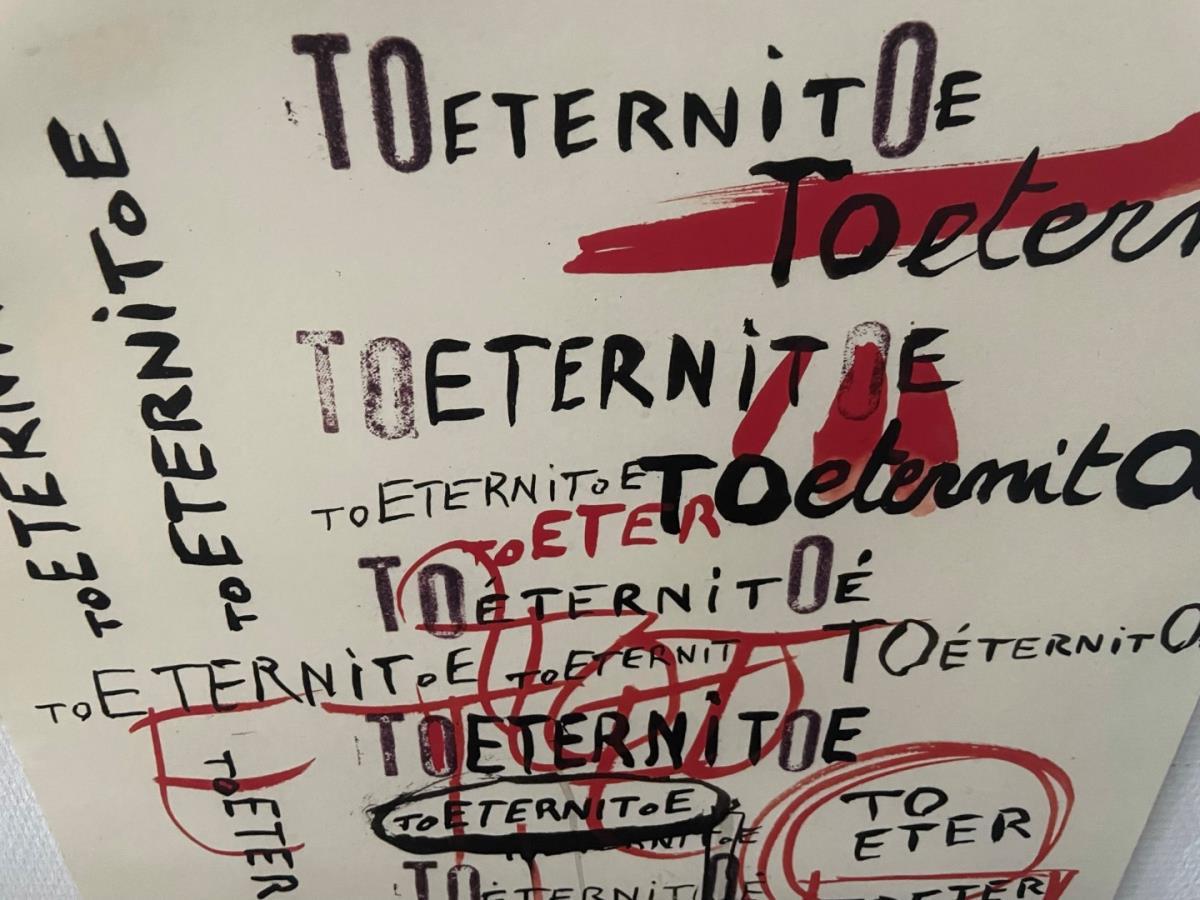 TOETERNiTOE
Toeter
TOETERNiTOE
TOETERNiToE
TOeternitO
TOETER
TOÉTERNiTOÉ
TOÉTERNiTO
TOETERNiToE
TOETERNIT
TOETERNiTOE
TOETERNIToE
TO
ETER
TOETERNiTOÉ
TOETER
TOETERNiToE
TOETERNi
TOETER